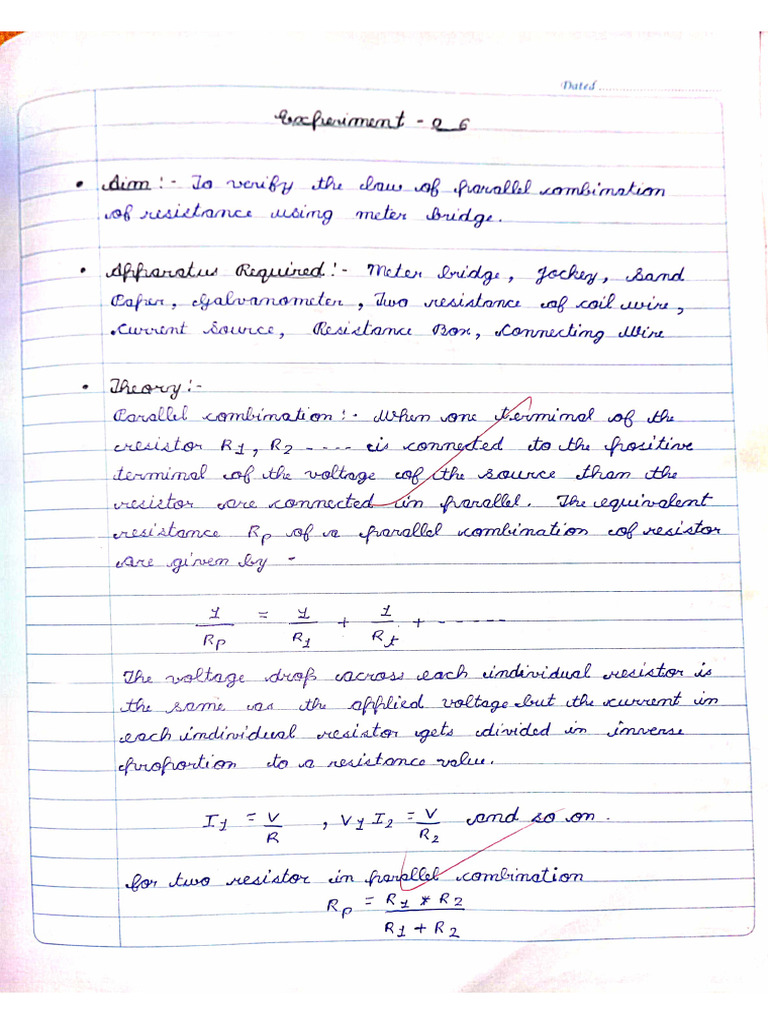 Dated
Experiment - 06
• Aim :- To verify the law of parallel combination
of resistance using meter bridge.
• Apparatus Required :- Meter bridge, Jockey, Sand
Paper, Galvanometer, Two resistance of coil wire,
Current Source, Resistance Box, Connecting Wire
• Theory :-
Parallel combination :- When one terminal of the
resistor R1, R2 ----- is connected to the positive
terminal of the voltage of the source than the
resistor are connected in parallel. The equivalent
resistance Rp of a parallel combination of resistor
are given by -
1/Rp = 1/R1 + 1/Rt + -----
The voltage drop across each individual resistor is
the same as the applied voltage but the current in
each individual resistor gets divided in inverse
proportion to a resistance value.
I1 = V/R , V1 I2 = V/R2 and so on.
for two resistor in parallel combination
Rp = R1 * R2 / R1 + R2